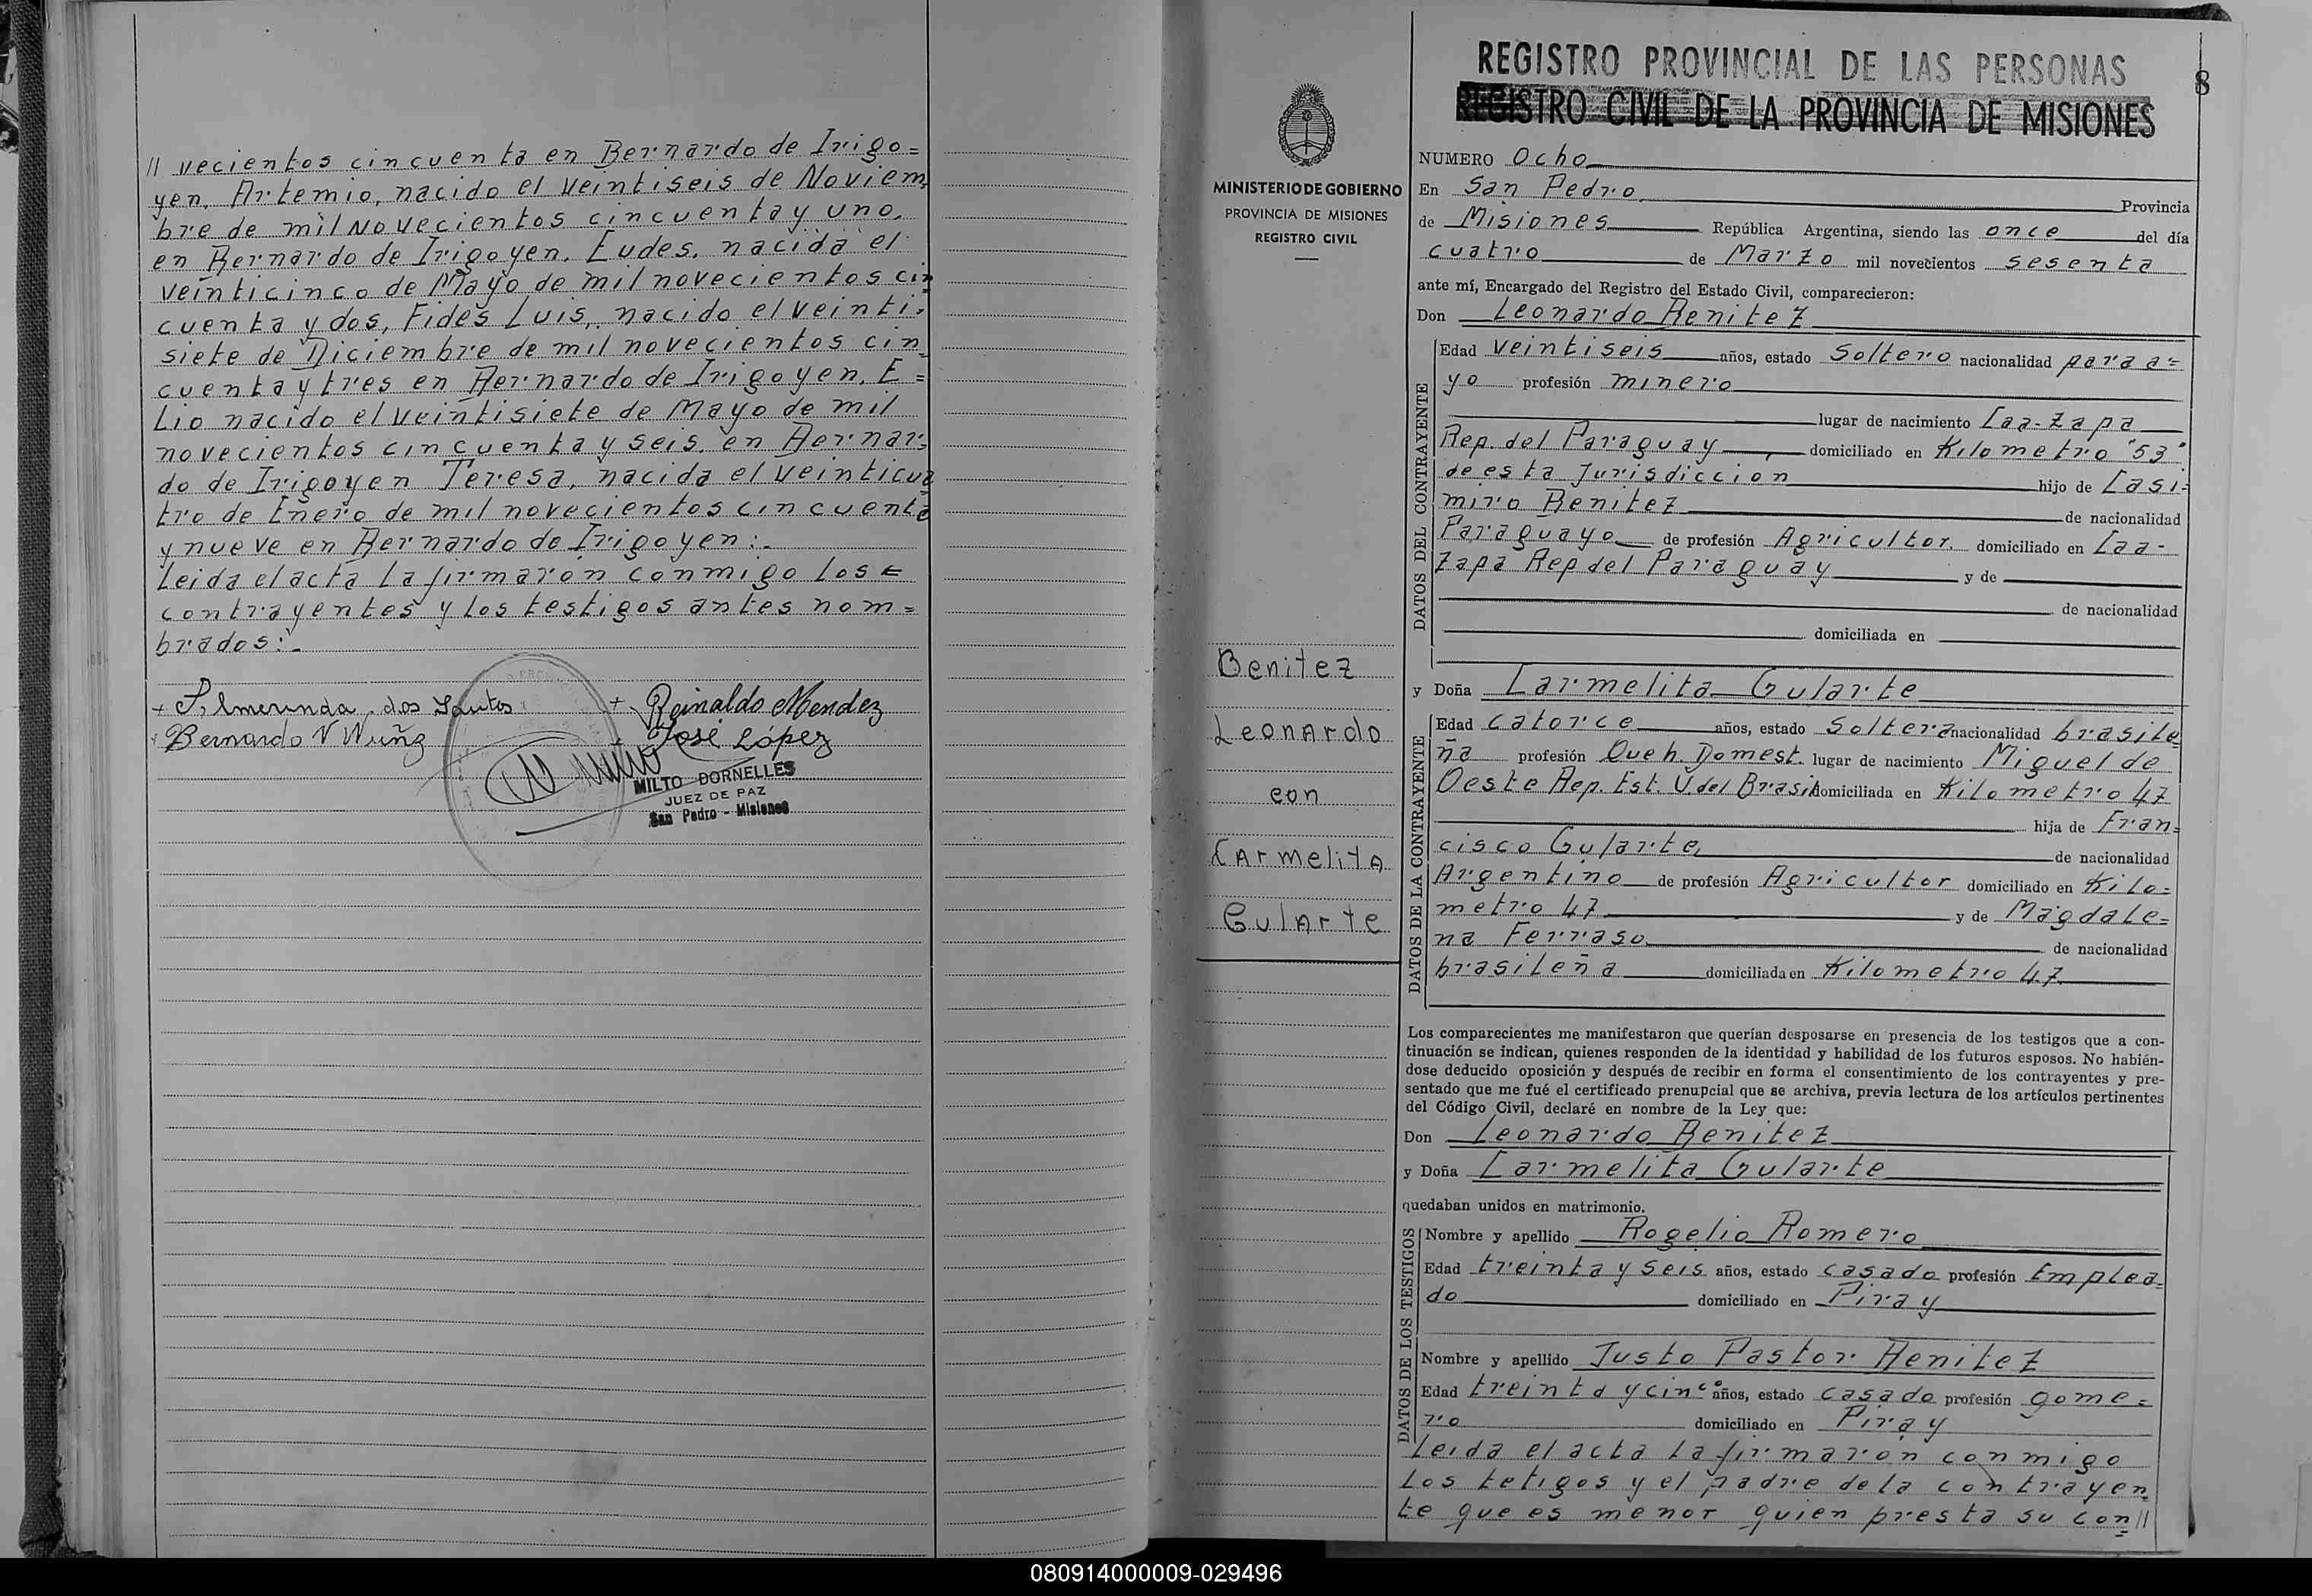 // vecientos cincuenta en Bernardo de Irigo=
yen, Artemio, nacido el veintiseis de Noviem
bre de mil novecientos cincuenta y uno,
en Bernardo de Irigoyen, Eudes, nacida el
veinticinco de Mayo de mil novecientos cin
cuenta y dos, Fides Luis, nacido el veinti=
siete de Diciembre de mil novecientos cin
cuenta y tres en Bernardo de Irigoyen, E=
lio nacido el veintisiete de Mayo de mil
novecientos cincuenta y seis, en Bernar=
do de Irigoyen Teresa, nacida el veinticua
tro de Enero de mil novecientos cincuenta
y nueve en Bernardo de Irigoyen:-
Leida el acta la firmaron conmigo los =
contrayentes y los testigos antes nom=
brados:-
dos Santos
Reinaldo Mendez
Bernardo V Nuñz
José López
MILTO DORNELLES
JUEZ DE PAZ
San Pedro - Misiones
8
MINISTERIO DE GOBIERNO
PROVINCIA DE MISIONES
REGISTRO CIVIL
Benitez
Leonardo
con
Carmelita
Gularte
REGISTRO PROVINCIAL DE LAS PERSONAS
REGISTRO CIVIL DE LA PROVINCIA DE MISIONES
NUMERO Ocho
En San Pedro, Provincia
de Misiones República Argentina, siendo las once del día
cuatro de Marzo mil novecientos sesenta
ante mí, Encargado del Registro del Estado Civil, comparecieron:
Don Leonardo Benitez
DATOS DEL CONTRAYENTE
Edad veintiseis años, estado Soltero nacionalidad paraa=
yo profesión minero
lugar de nacimiento Caa-zapa
Rep. del Paraguay, domiciliado en Kilometro "53"
de esta Jurisdiccion hijo de Casi=
miro Benitez de nacionalidad
Paraguayo de profesión Agricultor. domiciliado en Caa-
zapa Rep del Paraguay y de
de nacionalidad
domiciliada en
y Doña Carmelita Gularte
DATOS DE LA CONTRAYENTE
Edad catorce años, estado Soltera nacionalidad brasile
ña profesión Queh. Domest. lugar de nacimiento Miguel de
Oeste Rep. Est. U. del Brasil domiciliada en Kilometro 47
hija de Fran=
cisco Gularte, de nacionalidad
Argentino de profesión Agricultor domiciliado en Kilo=
metro 47 y de Magdale=
na Ferraso de nacionalidad
brasileña domiciliada en Kilometro 47.
Los comparecientes me manifestaron que querían desposarse en presencia de los testigos que a con-
tinuación se indican, quienes responden de la identidad y habilidad de los futuros esposos. No habién-
dose deducido oposición y después de recibir en forma el consentimiento de los contrayentes y pre-
sentado que me fué el certificado prenupcial que se archiva, previa lectura de los artículos pertinentes
del Código Civil, declaré en nombre de la Ley que:
Don Leonardo Benitez
y Doña Carmelita Gularte
quedaban unidos en matrimonio.
DATOS DE LOS TESTIGOS
Nombre y apellido Rogelio Romero
Edad treinta y seis años, estado casado profesión Emplea=
do domiciliado en Piray
Nombre y apellido Justo Pastor Benitez
Edad treinta y cinco años, estado casado profesión gome=
ro domiciliado en Piray
Leida el acta la firmaron conmigo
los tetigos y el padre de la contrayen
te que es menor quien presta su con//
080914000009-029496